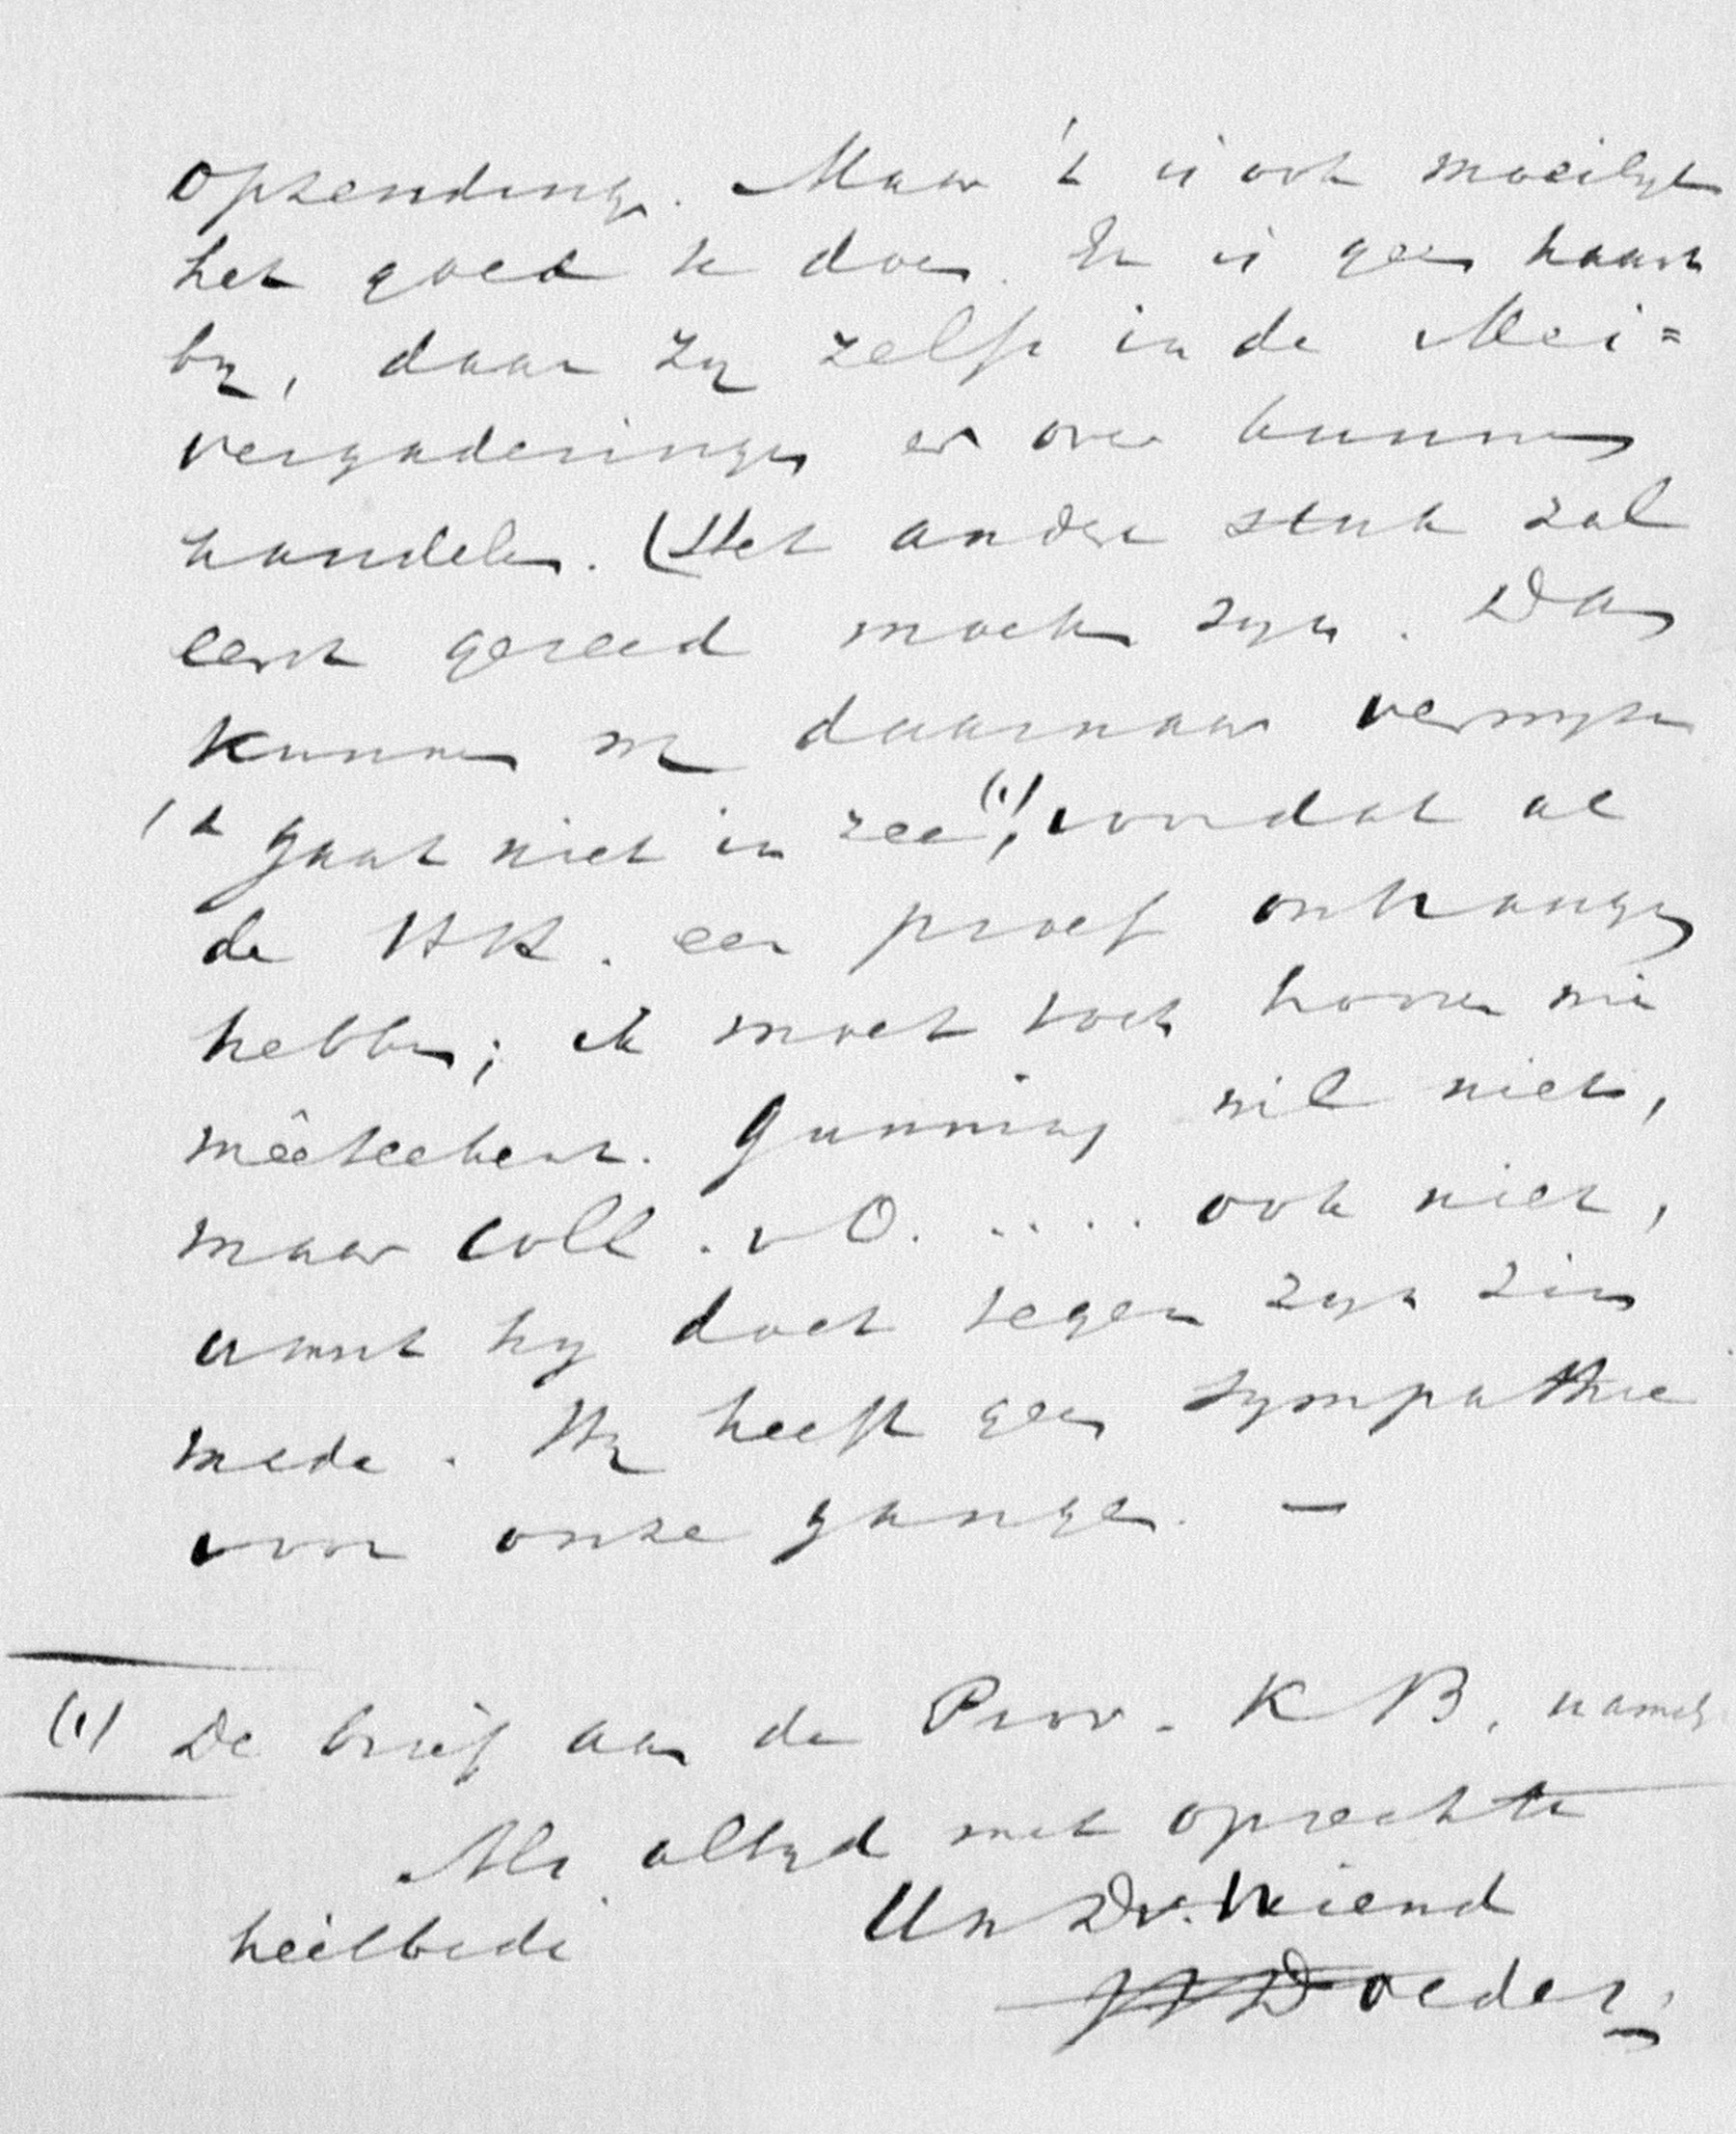 opzending. Maar 't is ook moeilijk
het goed te doen. Er is geen haast
bij, daar zij zelfs in de Mei=
vergaderingen er over kunnen
handelen. (Het andere stuk zal
eerst gereed moeten zijn. Dan
kunnen we daarnaar verwijzen
't gaat niet in zee (1), voordat al
de HH. een proef ontvangen
hebben; ik moet toch hooren wie
mêeteekent. Gunning wil niet,
maar Coll. v O. ..... ook niet,
want hij doet tegen zijn zin
mede. Hij heeft geen sympathie
voor onze gangen. —
(1) De brief aan de Prov. K B. namel
Als altijd met oprechte
heilbede Uw Dv. Vriend
Doedes